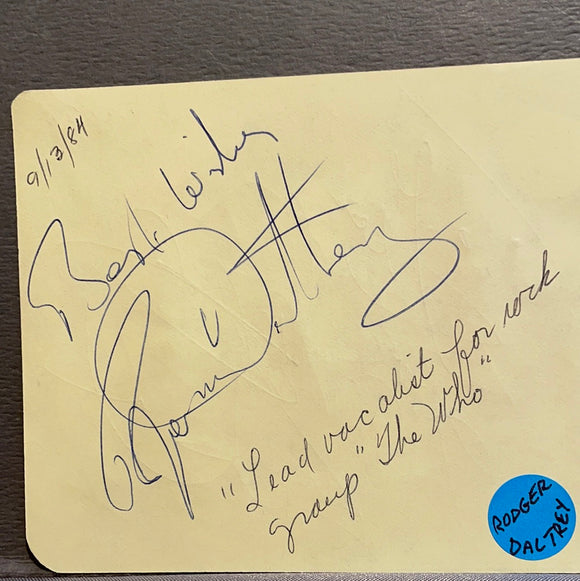 9/13/84
Best Wishes
"Lead vocalist for rock
group "The Who"
RODGER
DALTREY